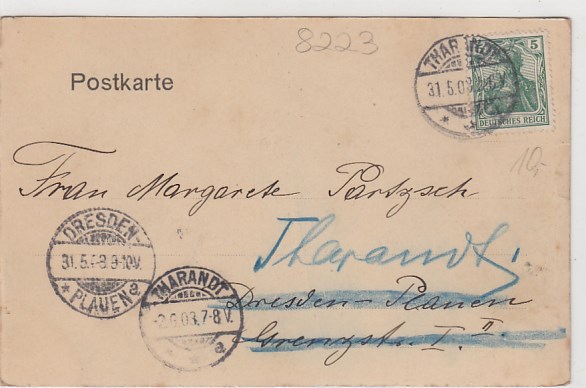 8223
Postkarte
THARANDT
31.5.03
5
DEUTSCHES REICH
10,-
Frau Margarete Partzsch
Tharandt
Dresden-Plauen
Grenzst. I. II.
DRESDEN-
31.5.03.9-10V.
* PLAUEN a
THARANDT
-2.6.03.7-8V.
* a